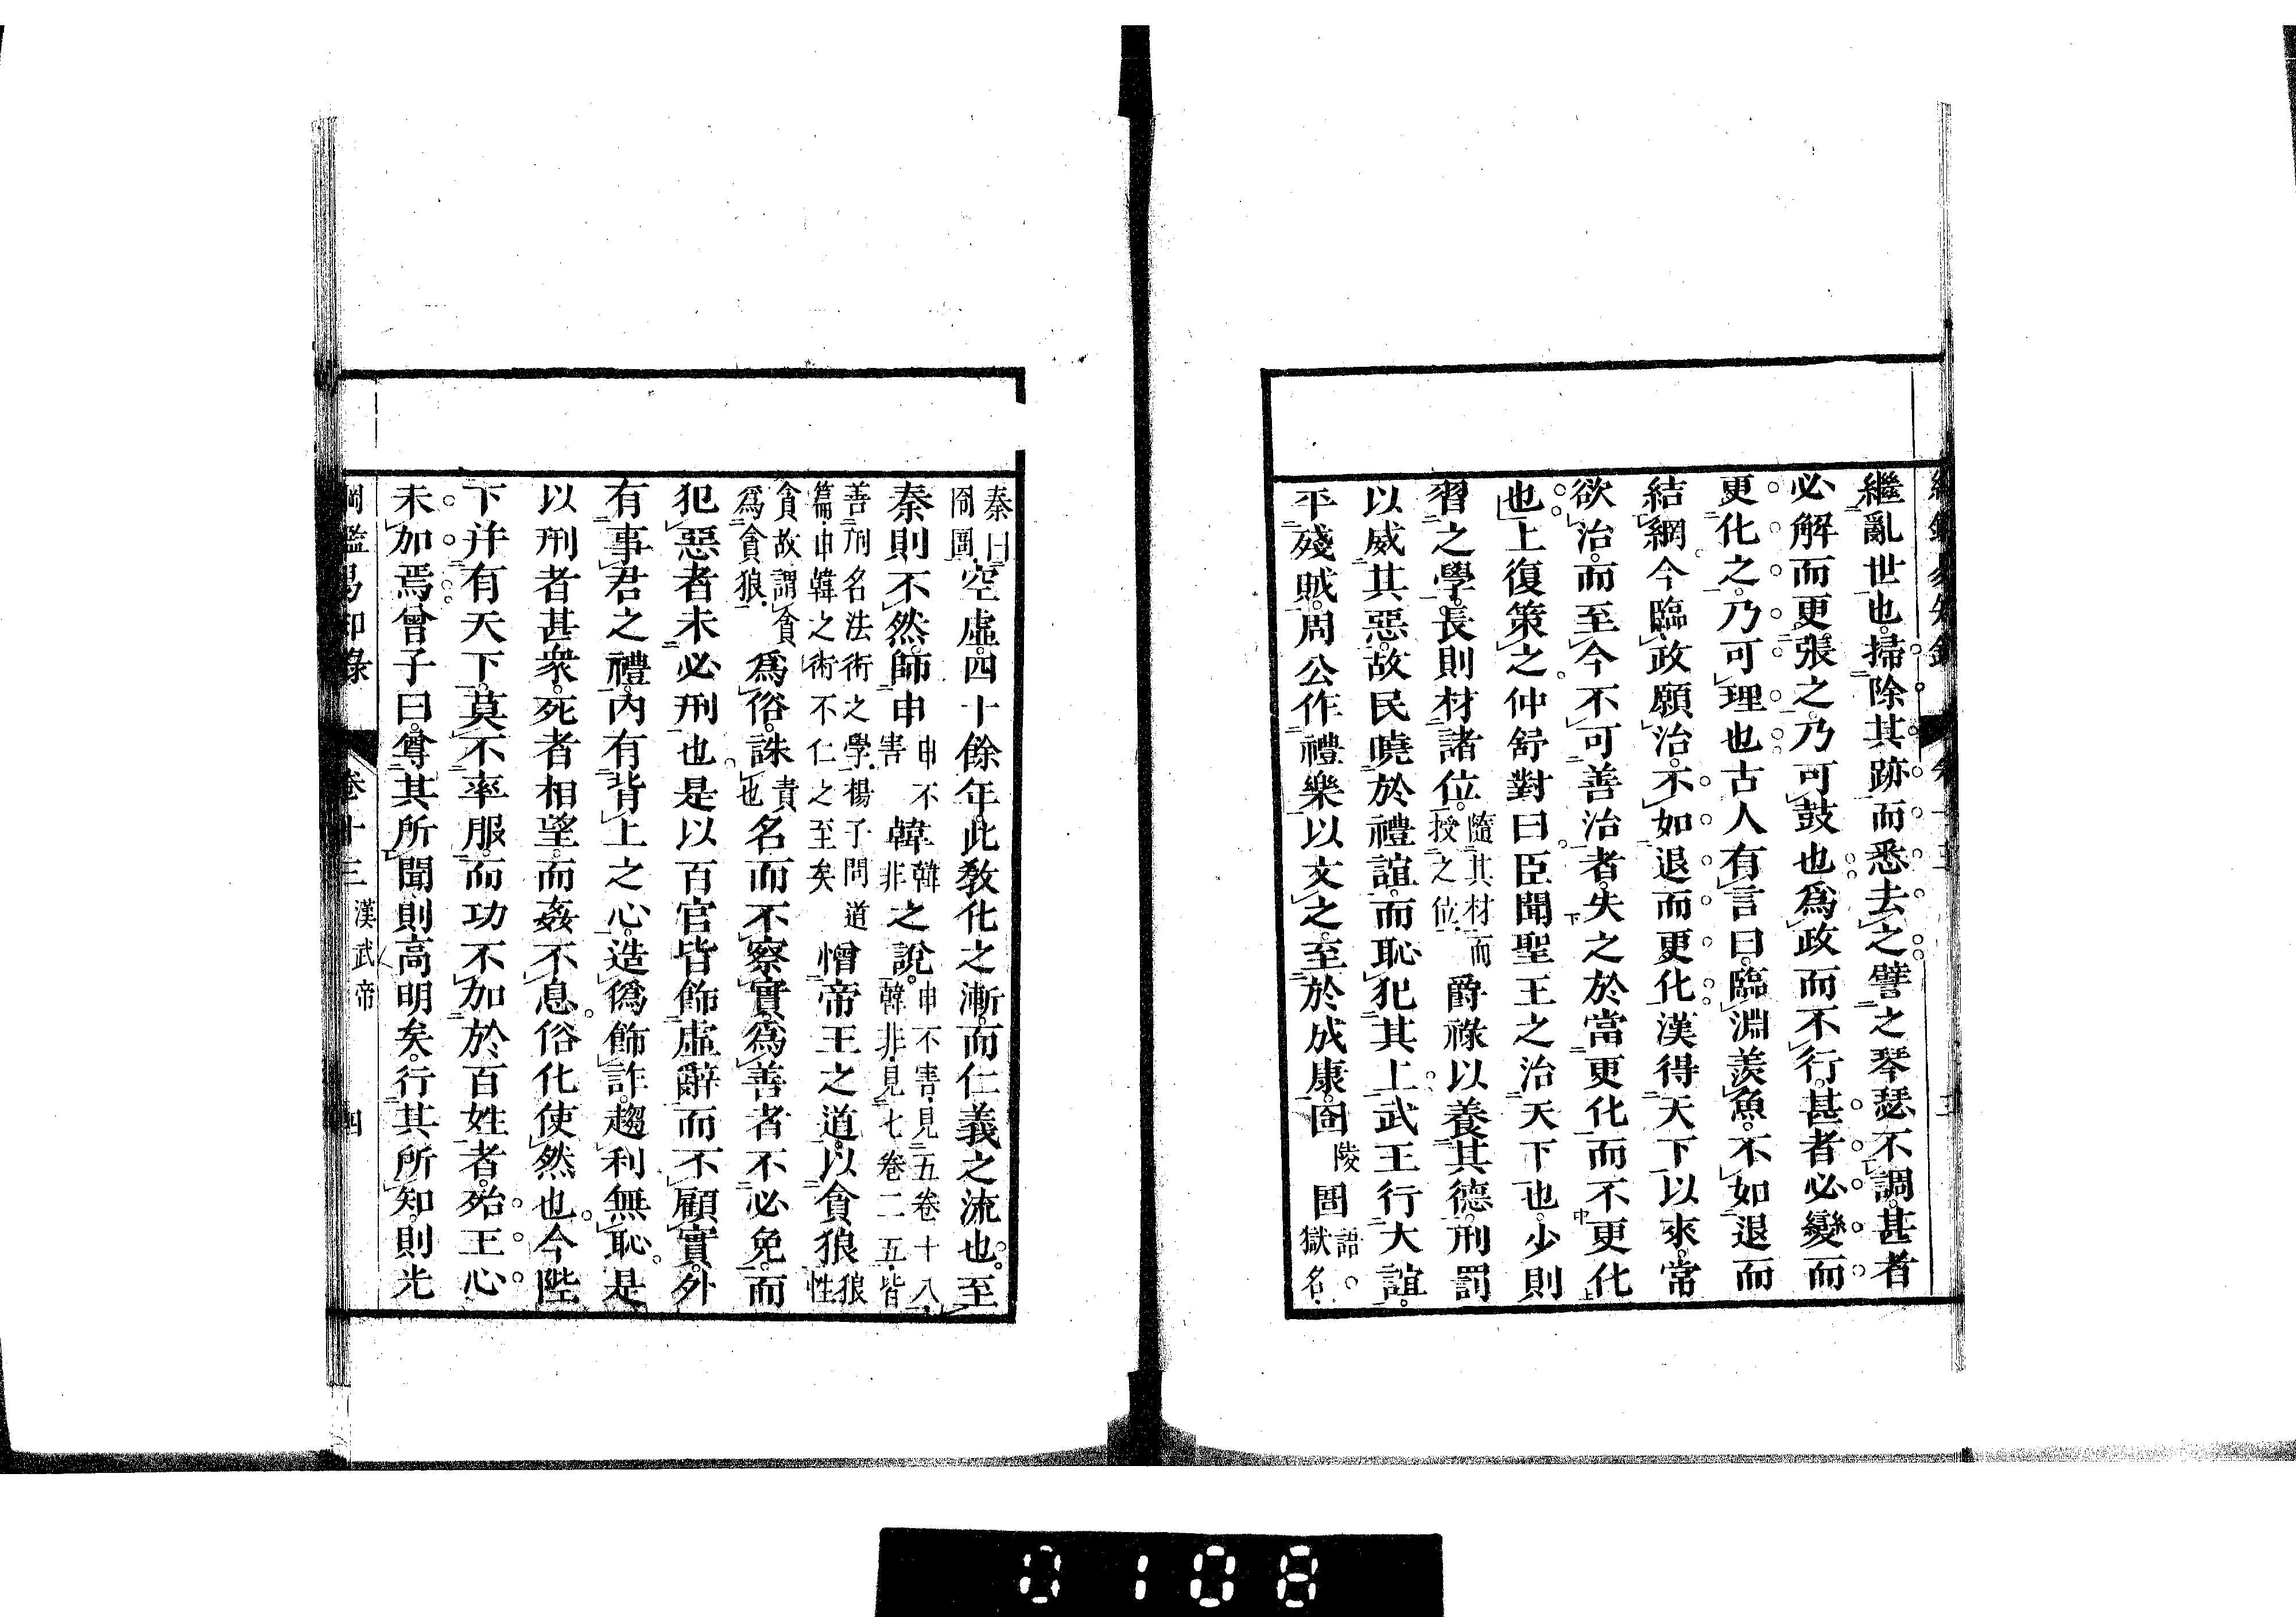 繼亂世也。掃除其跡而悉去之。譬之琴瑟不調。甚者
必解而更張之。乃可鼓也。爲政而不行。甚者必變而
更化之。乃可理也。古人有言曰。臨淵羨魚。不如退而
結網。今臨政願治。不如退而更化。漢得天下以來。常
欲治。而至今不可善治者。失之於當更化而不更化
也。上復策之。仲舒對曰。臣聞聖王之治天下也。少則
習之學。長則材諸位。隨其材而授之位。爵祿以養其德。刑罰
以威其惡。故民曉於禮誼。而恥犯其上。武王行大誼。
平殘賊。周公作禮樂以文之。至於成康。囹陵圄語。獄名。
秦曰囹圄。空虛。四十餘年。此敎化之漸。而仁義之流也。至
秦則不然。師申申不害韓韓非之說。申不害。見五卷十八。韓非。見七卷二五。皆
善刑名法術之學。楊子問道篇。申韓之術不仁之至矣憎帝王之道。以貪狼狼性
貪。故謂貪爲貪狼。爲俗。誅責也名而不察實。爲善者不必免。而
犯惡者未必刑也。是以百官皆飾虛辭而不顧實。外
有事君之禮。內有背上之心。造僞飾詐。趨利無恥。是
以刑者甚衆。死者相望。而姦不息。俗化使然也。今陛
下幷有天下。莫不率服。而功不加於百姓者。殆王心
未加焉。曾子曰。尊其所聞則高明矣。行其所知。則光
綱鑑易知錄 卷十三 漢武帝 四